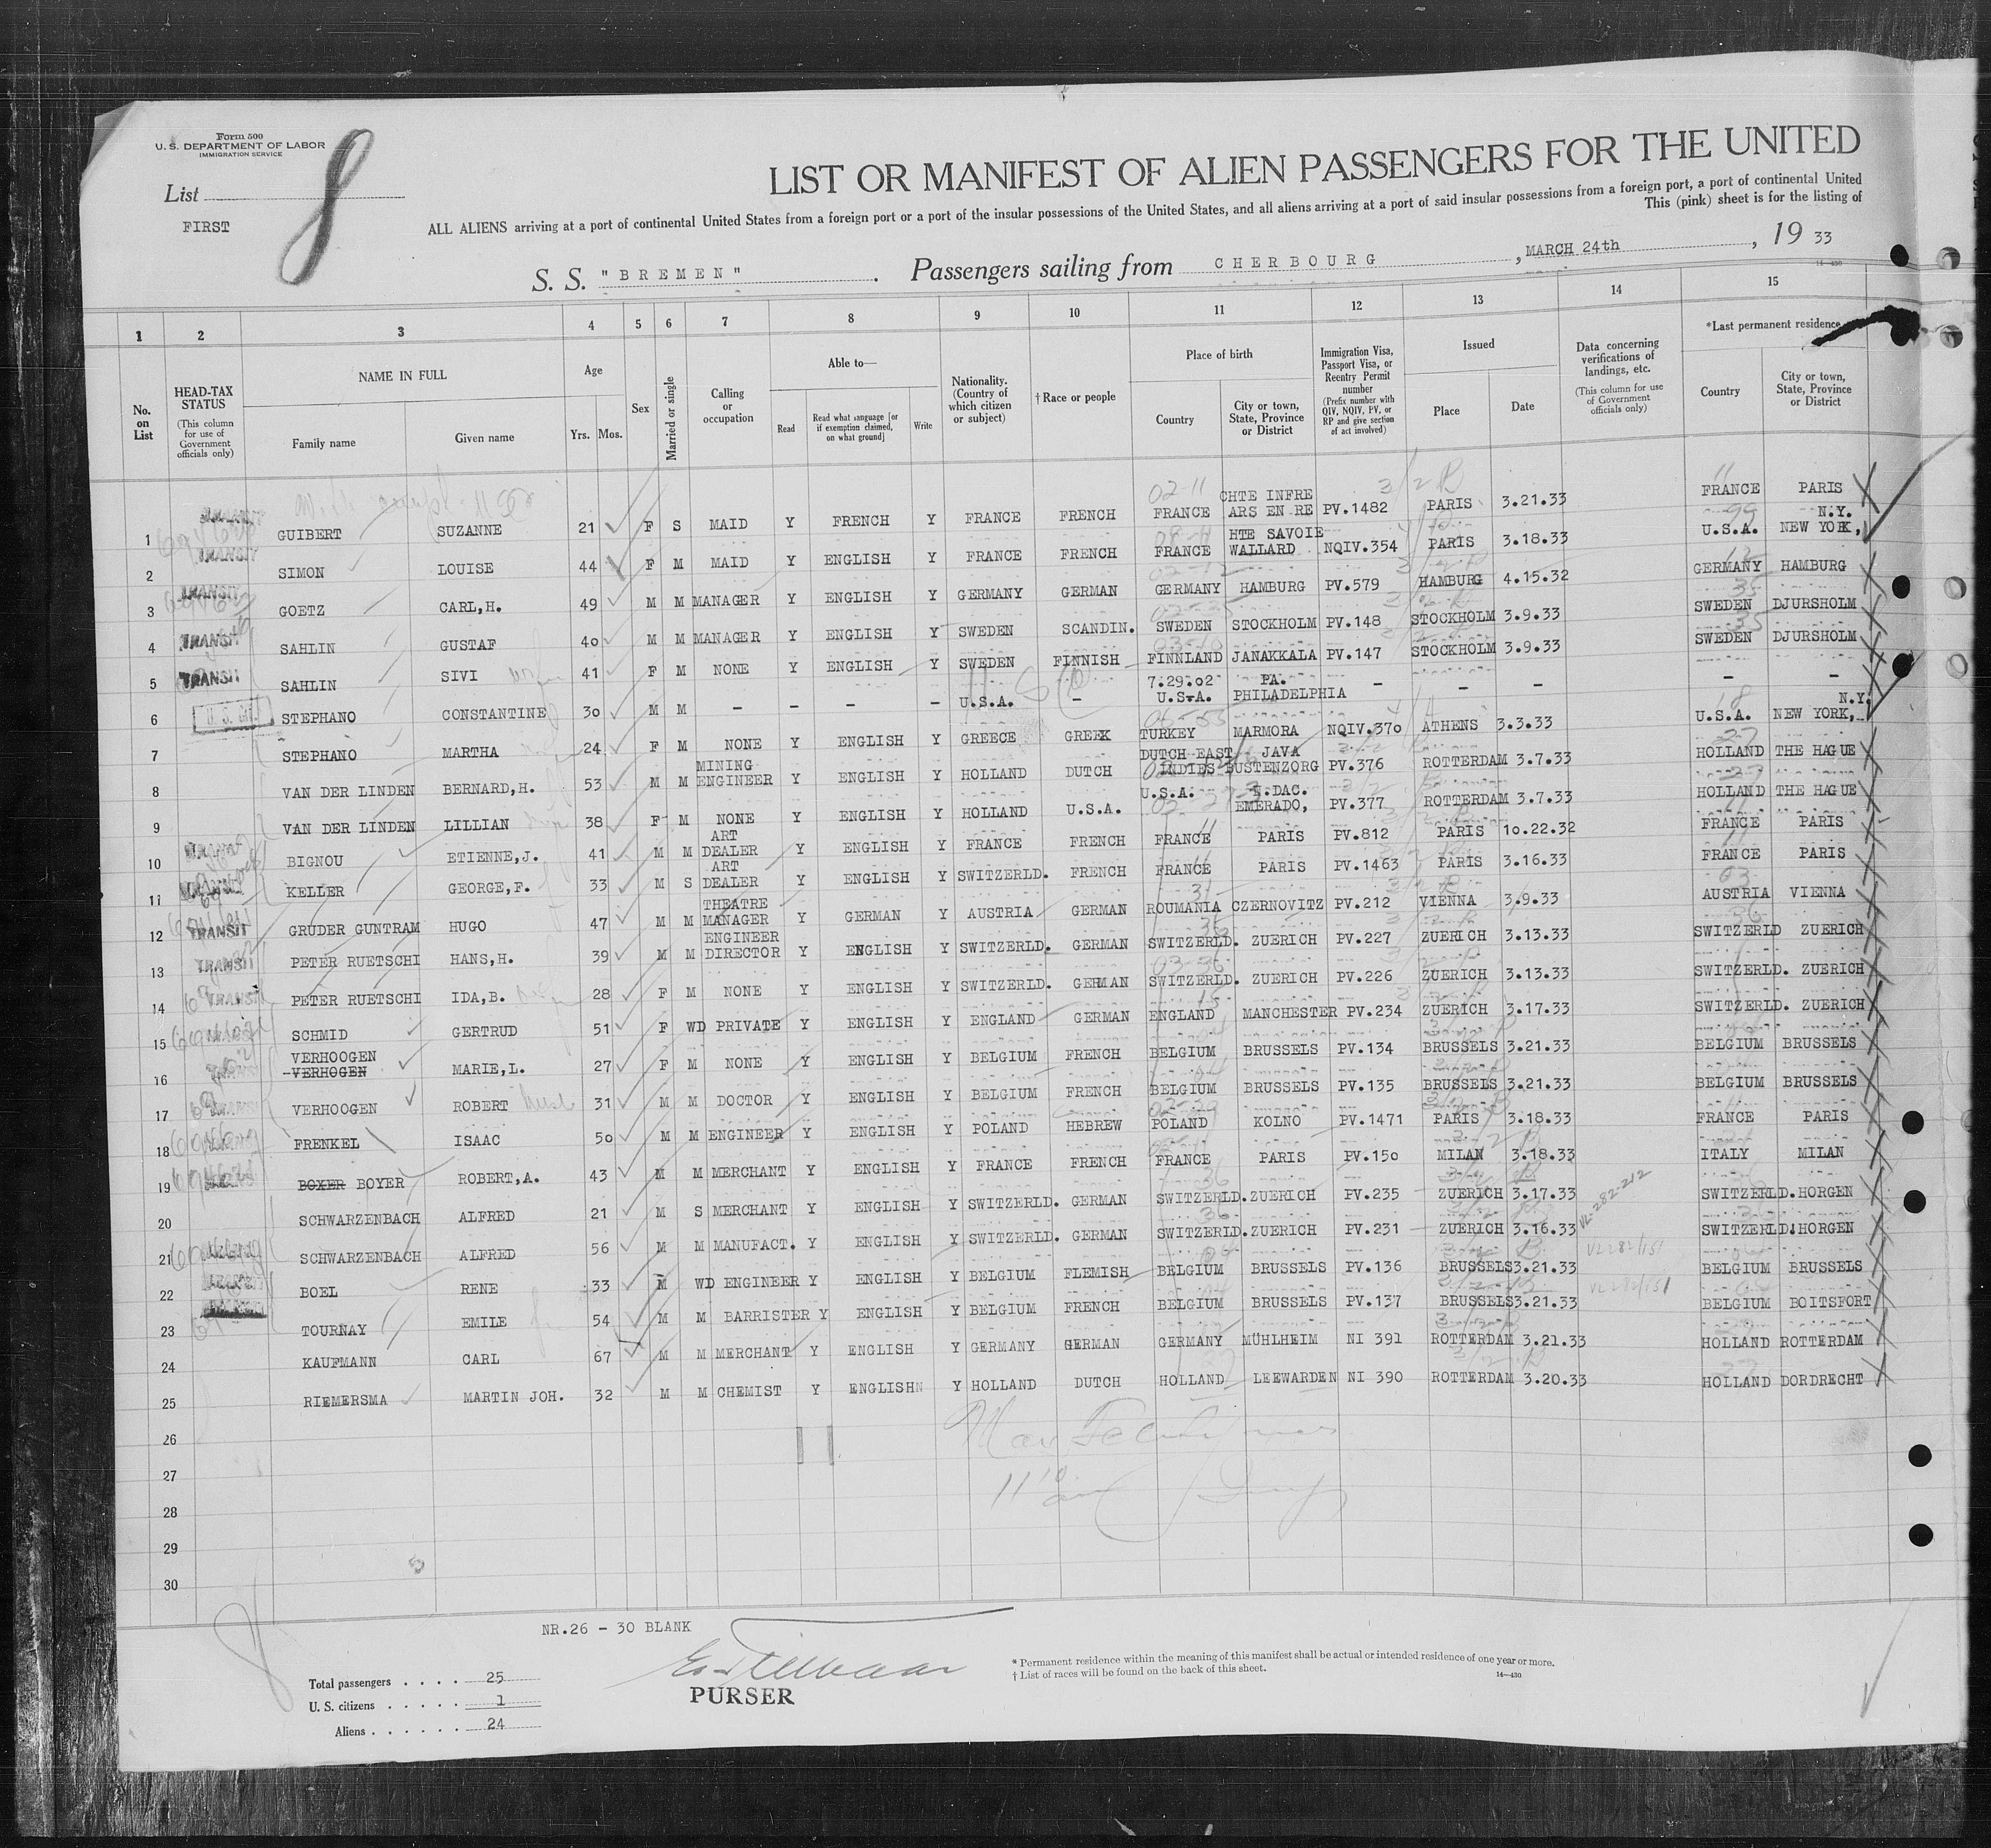 Form 500
U. S. DEPARTMENT OF LABOR
IMMIGRATION SERVICE
List 8
FIRST
LIST OR MANIFEST OF ALIEN PASSENGERS FOR THE UNITED
ALL ALIENS arriving at a port of continental United States from a foreign port or a port of the insular possessions of the United States, and all aliens arriving at a port of said insular possessions from a foreign port, a port of continental United
This (pink) sheet is for the listing of
S. S. "BREMEN". Passengers sailing from CHERBOURG, MARCH 24th, 19 33
14—430
1 2 3 4 5 6 7 8 9 10 11 12 13 14 15
No. on List
HEAD-TAX STATUS (This column for use of Government officials only)
NAME IN FULL Family name Given name
Age Yrs. Mos.
Sex
Married or single
Calling or occupation
Able to— Read Read what language [or if exemption claimed, on what ground] Write
Nationality. (Country of which citizen or subject)
† Race or people
Place of birth Country City or town, State, Province or District
Immigration Visa, Passport Visa, or Reentry Permit number (Prefix number with QIV, NQIV, PV, or RP and give section of act involved)
Issued Place Date
Data concerning verifications of landings, etc. (This column for use of Government officials only)
*Last permanent residence Country City or town, State, Province or District
1 TRANSIT GUIBERT SUZANNE 21 F S MAID Y FRENCH Y FRANCE FRENCH FRANCE CHTE INFRE ARS EN RE PV.1482 PARIS 3.21.33 FRANCE PARIS
2 TRANSIT SIMON LOUISE 44 F M MAID Y ENGLISH Y FRANCE FRENCH FRANCE HTE SAVOIE WALLARD NQIV.354 PARIS 3.18.33 U.S.A. N.Y. NEW YORK,
3 TRANSIT GOETZ CARL,H. 49 M M MANAGER Y ENGLISH Y GERMANY GERMAN GERMANY HAMBURG PV.579 HAMBURG 4.15.32 GERMANY HAMBURG
4 TRANSIT SAHLIN GUSTAF 40 M M MANAGER Y ENGLISH Y SWEDEN SCANDIN. SWEDEN STOCKHOLM PV.148 STOCKHOLM 3.9.33 SWEDEN DJURSHOLM
5 TRANSIT SAHLIN SIVI 41 F M NONE Y ENGLISH Y SWEDEN FINNISH FINNLAND JANAKKALA PV.147 STOCKHOLM 3.9.33 SWEDEN DJURSHOLM
6 STEPHANO CONSTANTINE 30 M M - - - - U.S.A. - 7.29.02 U.S.A. PA. PHILADELPHIA - - - - -
7 STEPHANO MARTHA 24 F M NONE Y ENGLISH Y GREECE GREEK TURKEY MARMORA NQIV.370 ATHENS 3.3.33 U.S.A. N.Y. NEW YORK,
8 VAN DER LINDEN BERNARD,H. 53 M M MINING ENGINEER Y ENGLISH Y HOLLAND DUTCH DUTCH EAST INDIES JAVA BUSTENZORG PV.376 ROTTERDAM 3.7.33 HOLLAND THE HAGUE
9 VAN DER LINDEN LILLIAN 38 F M NONE Y ENGLISH Y HOLLAND U.S.A. U.S.A. S.DAC. EMERADO, PV.377 ROTTERDAM 3.7.33 HOLLAND THE HAGUE
10 BIGNOU ETIENNE,J. 41 M M ART DEALER Y ENGLISH Y FRANCE FRENCH FRANCE PARIS PV.812 PARIS 10.22.32 FRANCE PARIS
11 KELLER GEORGE,F. 33 M S ART DEALER Y ENGLISH Y SWITZERLD. FRENCH FRANCE PARIS PV.1463 PARIS 3.16.33 FRANCE PARIS
12 TRANSIT GRUDER GUNTRAM HUGO 47 M M THEATRE MANAGER Y GERMAN Y AUSTRIA GERMAN ROUMANIA CZERNOVITZ PV.212 VIENNA 3.9.33 AUSTRIA VIENNA
13 TRANSIT PETER RUETSCHI HANS,H. 39 M M ENGINEER DIRECTOR Y ENGLISH Y SWITZERLD. GERMAN SWITZERLD. ZUERICH PV.227 ZUERICH 3.13.33 SWITZERLD ZUERICH
14 TRANSIT PETER RUETSCHI IDA,B. 28 F M NONE Y ENGLISH Y SWITZERLD. GERMAN SWITZERLD. ZUERICH PV.226 ZUERICH 3.13.33 SWITZERLD. ZUERICH
15 SCHMID GERTRUD 51 F WD PRIVATE Y ENGLISH Y ENGLAND GERMAN ENGLAND MANCHESTER PV.234 ZUERICH 3.17.33 SWITZERLD. ZUERICH
16 VERHOOGEN VERHOGEN MARIE,L. 27 F M NONE Y ENGLISH Y BELGIUM FRENCH BELGIUM BRUSSELS PV.134 BRUSSELS 3.21.33 BELGIUM BRUSSELS
17 VERHOOGEN ROBERT 31 M M DOCTOR Y ENGLISH Y BELGIUM FRENCH BELGIUM BRUSSELS PV.135 BRUSSELS 3.21.33 BELGIUM BRUSSELS
18 FRENKEL ISAAC 50 M M ENGINEER Y ENGLISH Y POLAND HEBREW POLAND KOLNO PV.1471 PARIS 3.18.33 FRANCE PARIS
19 BOXER BOYER ROBERT,A. 43 M M MERCHANT Y ENGLISH Y FRANCE FRENCH FRANCE PARIS PV.150 MILAN 3.18.33 ITALY MILAN
20 SCHWARZENBACH ALFRED 21 M S MERCHANT Y ENGLISH Y SWITZERLD. GERMAN SWITZERLD. ZUERICH PV.235 ZUERICH 3.17.33 SWITZERLD. HORGEN
21 SCHWARZENBACH ALFRED 56 M M MANUFACT. Y ENGLISH Y SWITZERLD. GERMAN SWITZERLD. ZUERICH PV.231 ZUERICH 3.16.33 SWITZERLD. HORGEN
22 BOEL RENE 33 M WD ENGINEER Y ENGLISH Y BELGIUM FLEMISH BELGIUM BRUSSELS PV.136 BRUSSELS 3.21.33 BELGIUM BRUSSELS
23 TOURNAY EMILE 54 M M BARRISTER Y ENGLISH Y BELGIUM FRENCH BELGIUM BRUSSELS PV.137 BRUSSELS 3.21.33 BELGIUM BOITSFORT
24 KAUFMANN CARL 67 M M MERCHANT Y ENGLISH Y GERMANY GERMAN GERMANY MÜHLHEIM NI 391 ROTTERDAM 3.21.33 HOLLAND ROTTERDAM
25 RIEMERSMA MARTIN JOH. 32 M M CHEMIST Y ENGLISH Y HOLLAND DUTCH HOLLAND LEEWARDEN NI 390 ROTTERDAM 3.20.33 HOLLAND DORDRECHT
26
27
28
29
30
NR.26 - 30 BLANK
Total passengers . . . . 25
U. S. citizens . . . . . 1
Aliens . . . . . . 24
PURSER
* Permanent residence within the meaning of this manifest shall be actual or intended residence of one year or more.
† List of races will be found on the back of this sheet.
14—430